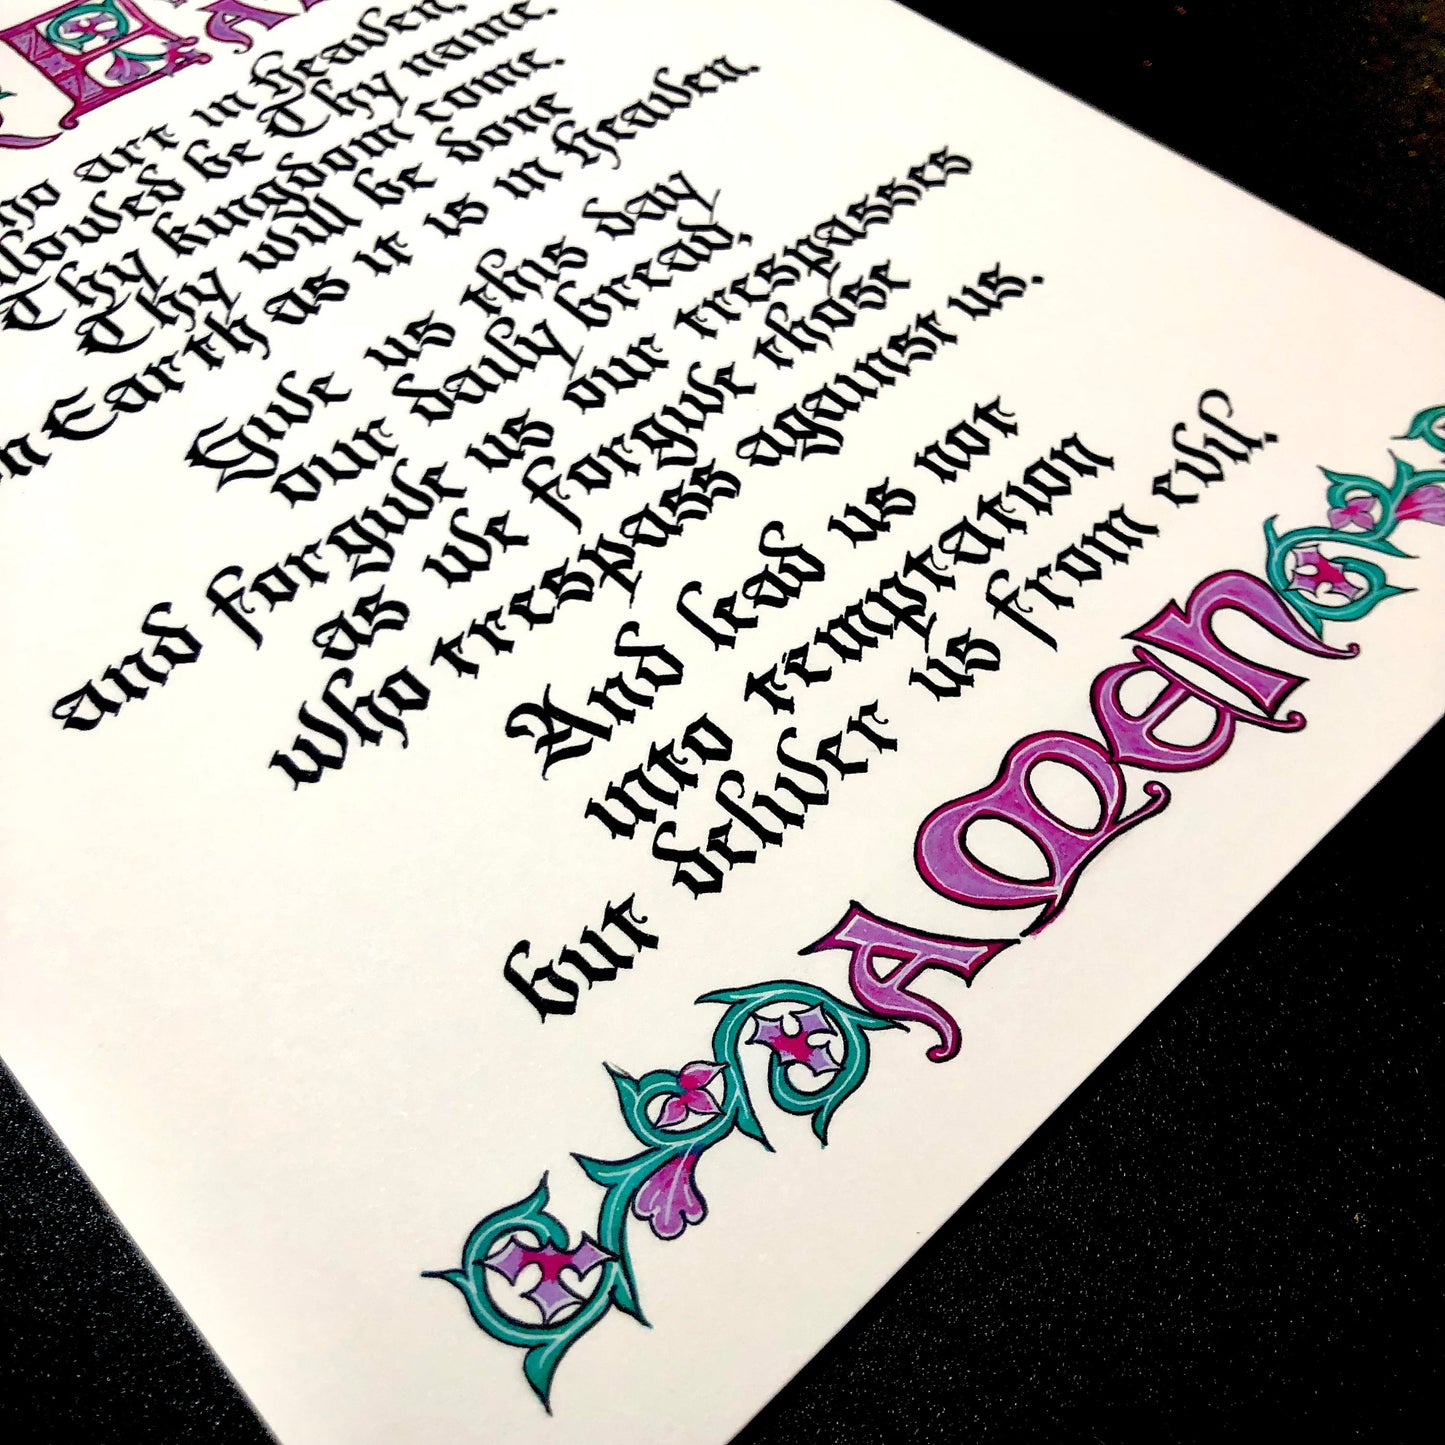 art in Heaven,
be Thy name.
Thy kingdom come.
Thy will be done
Earth as it is in Heaven.
Give us this day
our daily bread,
and forgive us our trespasses
as we forgive those
who trespass against us.
And lead us not
into temptation
but deliver us from evil.
Amen